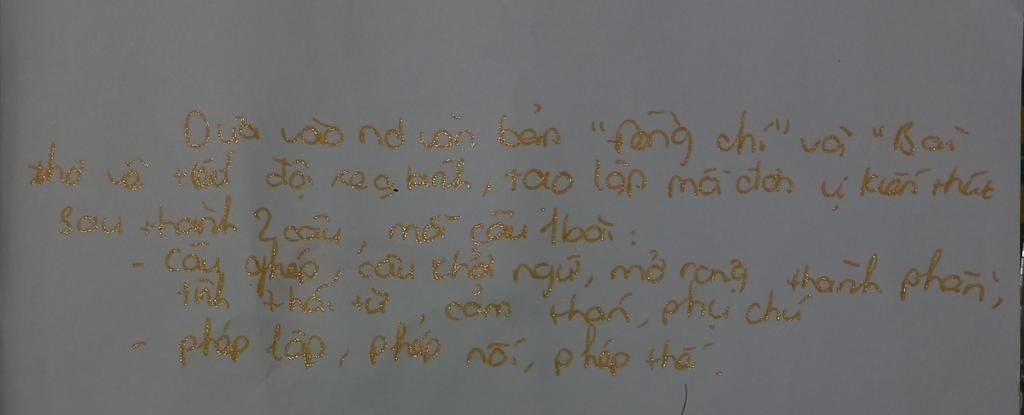 Dựa vào nd văn bản "Đồng chí" và "Bài
thơ về tiểu đội xe kính, tạo lập mỗi đơn vị kiến thức
sau thành 2 câu, mỗi câu 1 bài:
- Câu ghép, câu khởi ngữ, mở rộng thành phần,
tình thái từ, cảm thán, phụ chú
- phép lặp, phép nối, phép thế.